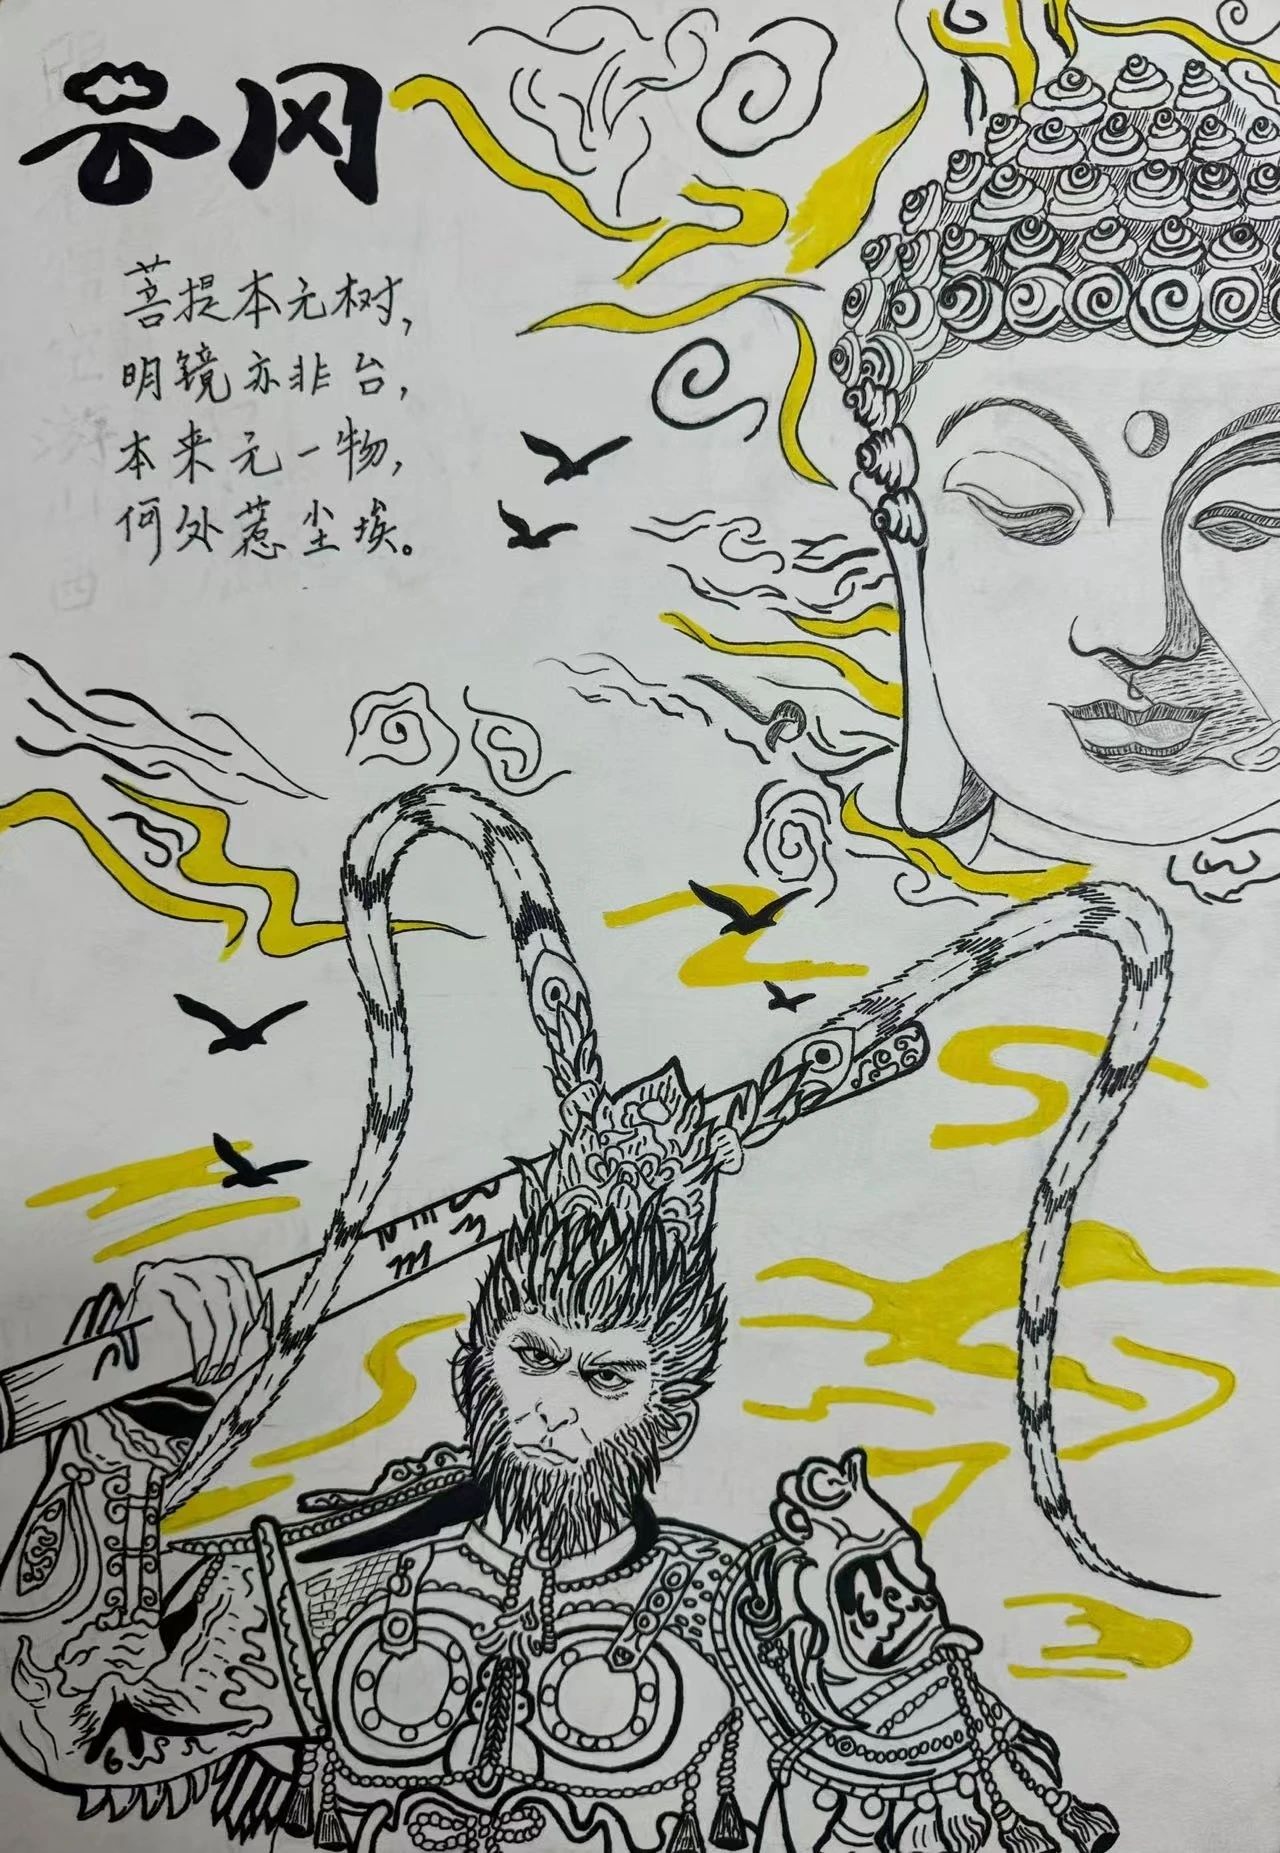 云冈
菩提本元树，
明镜亦非台，
本来元一物，
何处惹尘埃。